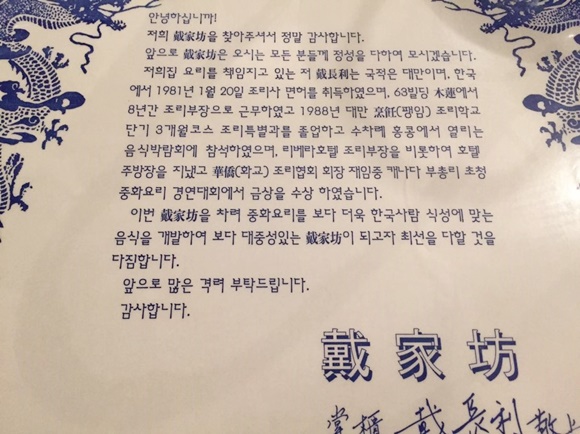 안녕하십니까!
저희 戴家坊을 찾아주셔서 정말 감사합니다.
앞으로 戴家坊은 오시는 모든 분들께 정성을 다하여 모시겠습니다.
저희집 요리를 책임지고 있는 저 戴長利는 국적은 대만이며, 한국
에서 1981년 1월 20일 조리사 면허를 취득하였으며, 63빌딩 木蓮에서
8년간 조리부장으로 근무하였고 1988년 대만 烹飪(팽임) 조리학교
단기 3개월코스 조리특별과를 졸업하고 수차례 홍콩에서 열리는
음식박람회에 참석하였으며, 리베라호텔 조리부장을 비롯하여 호텔
주방장을 지냈고 華僑(화교) 조리협회 회장 재임중 캐나다 부총리 초청
중화요리 경연대회에서 금상을 수상 하였습니다.
이번 戴家坊을 차려 중화요리를 보다 더욱 한국사람 식성에 맞는
음식을 개발하여 보다 대중성있는 戴家坊이 되고자 최선을 다할 것을
다짐합니다.
앞으로 많은 격려 부탁드립니다.
감사합니다.
戴家坊
掌櫃 戴長利 敬上